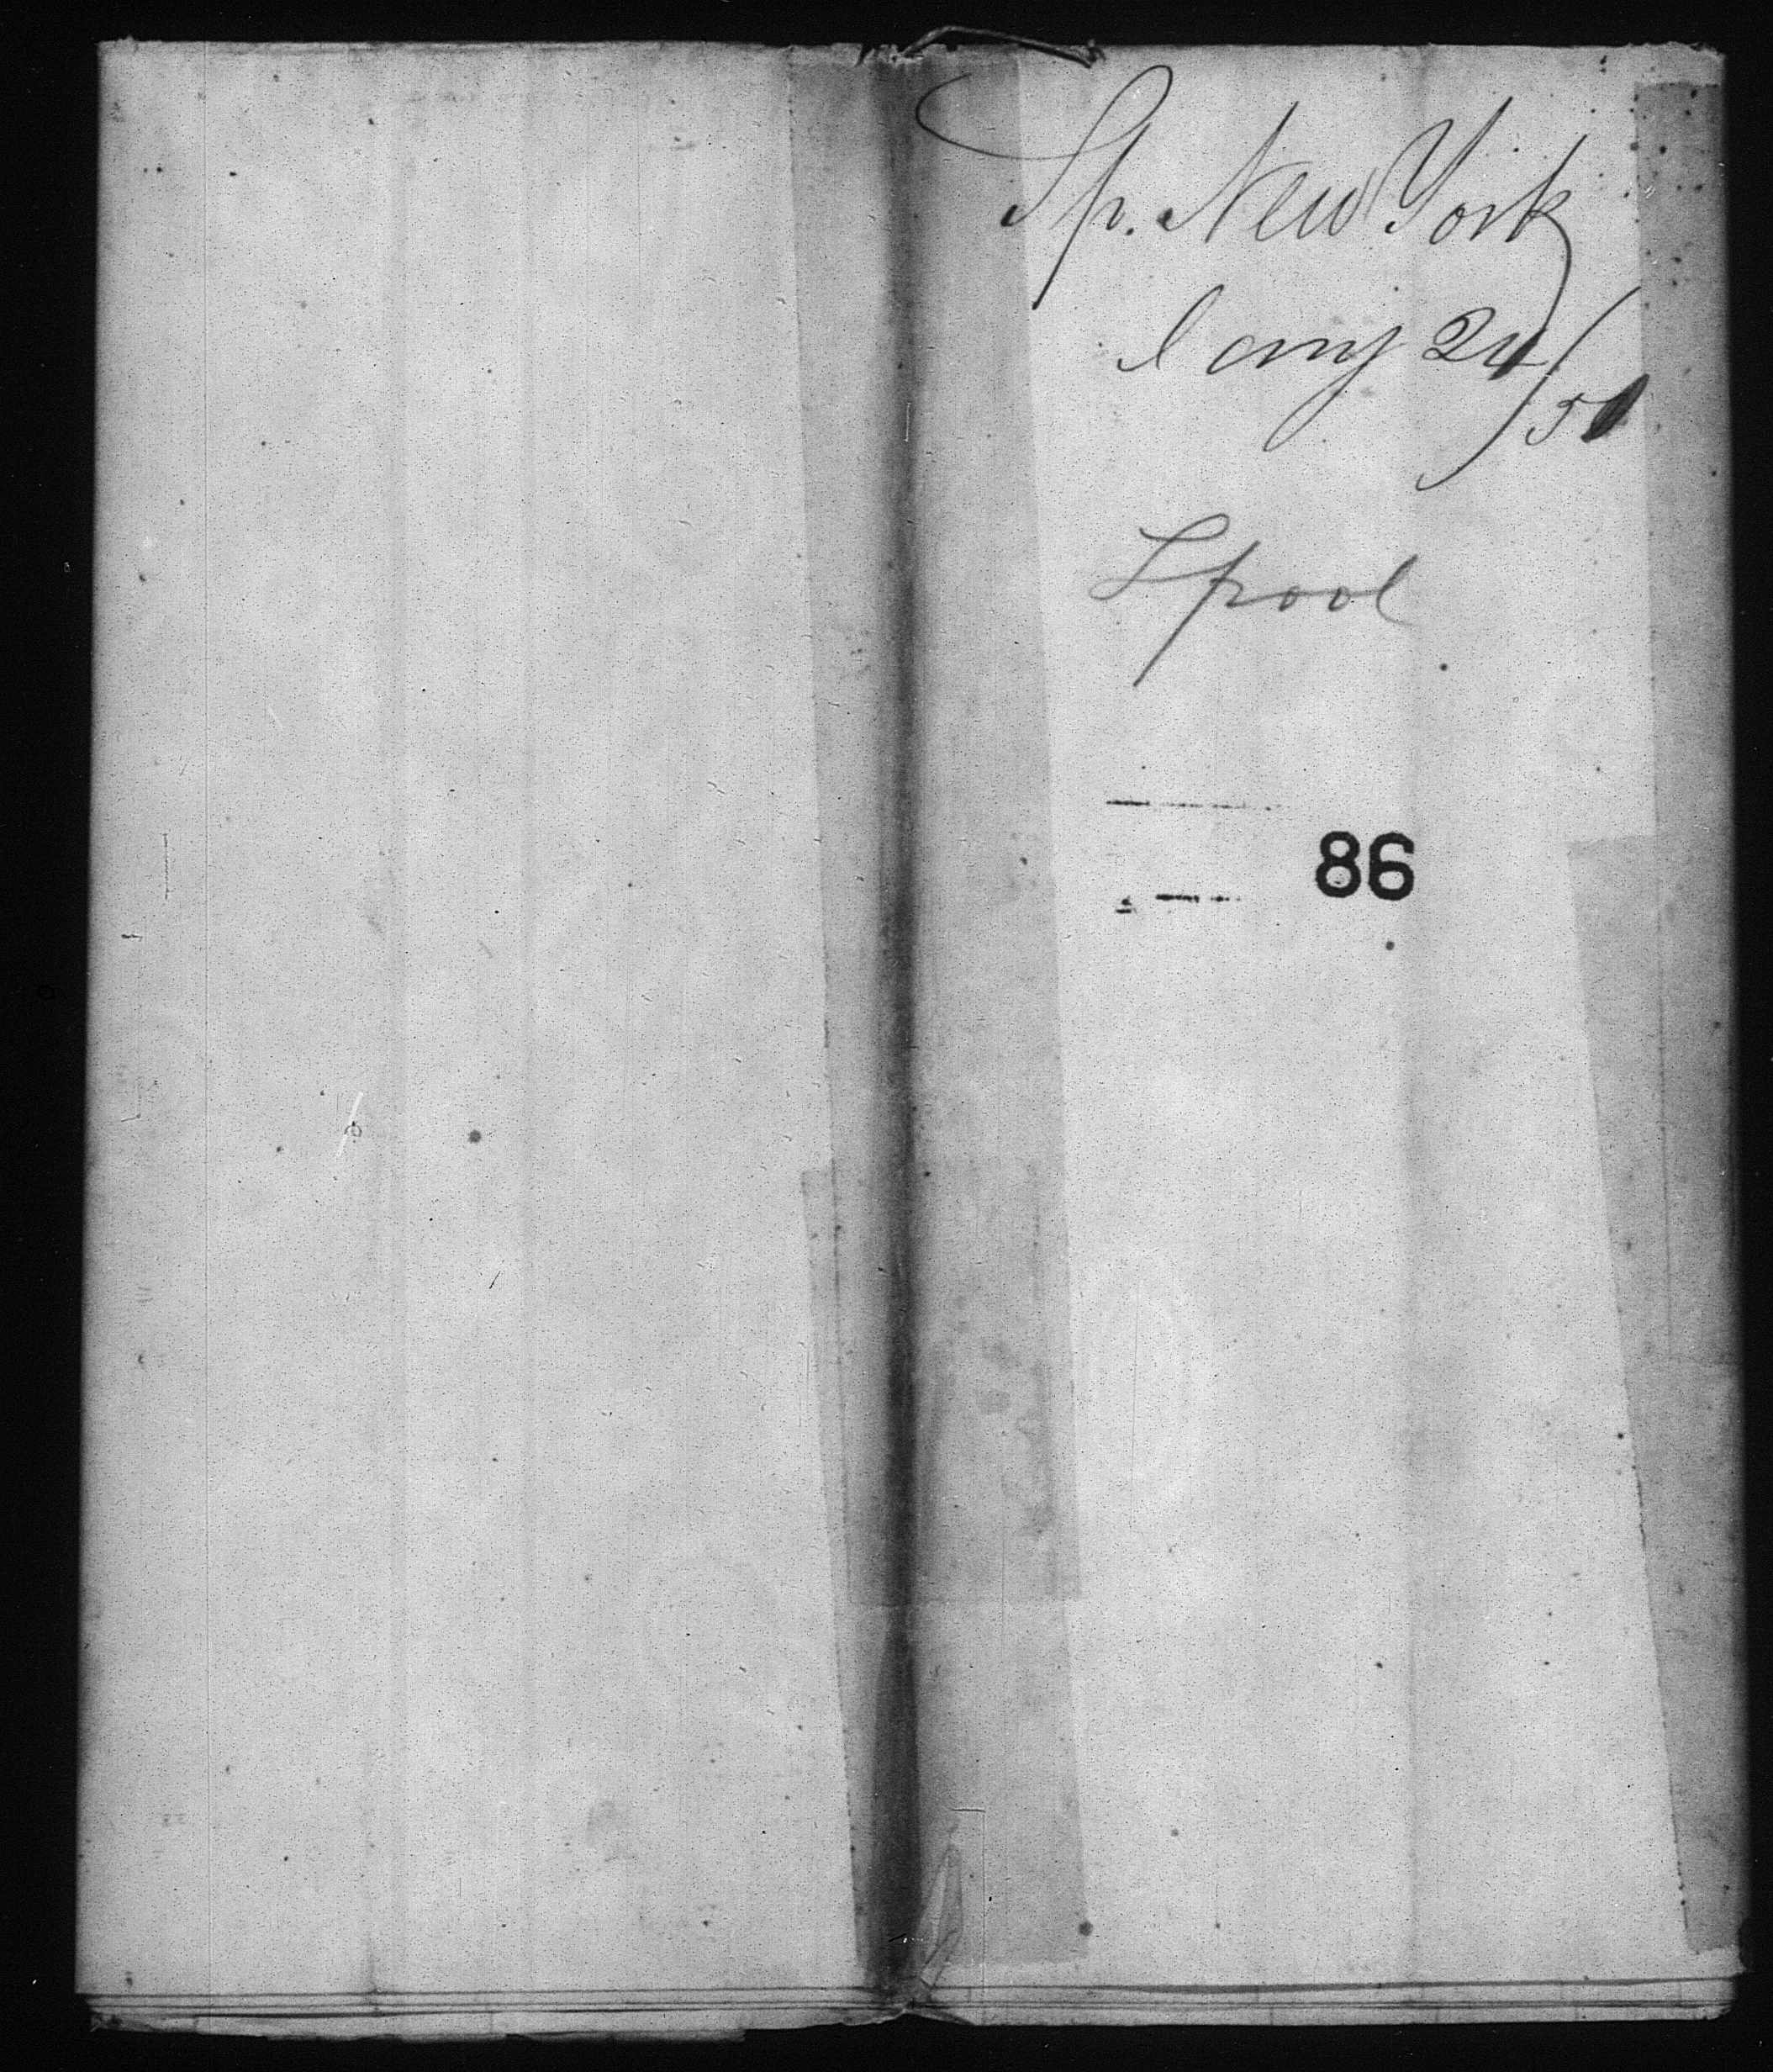 Sp. New York
Aug 24/51
Lpool
86